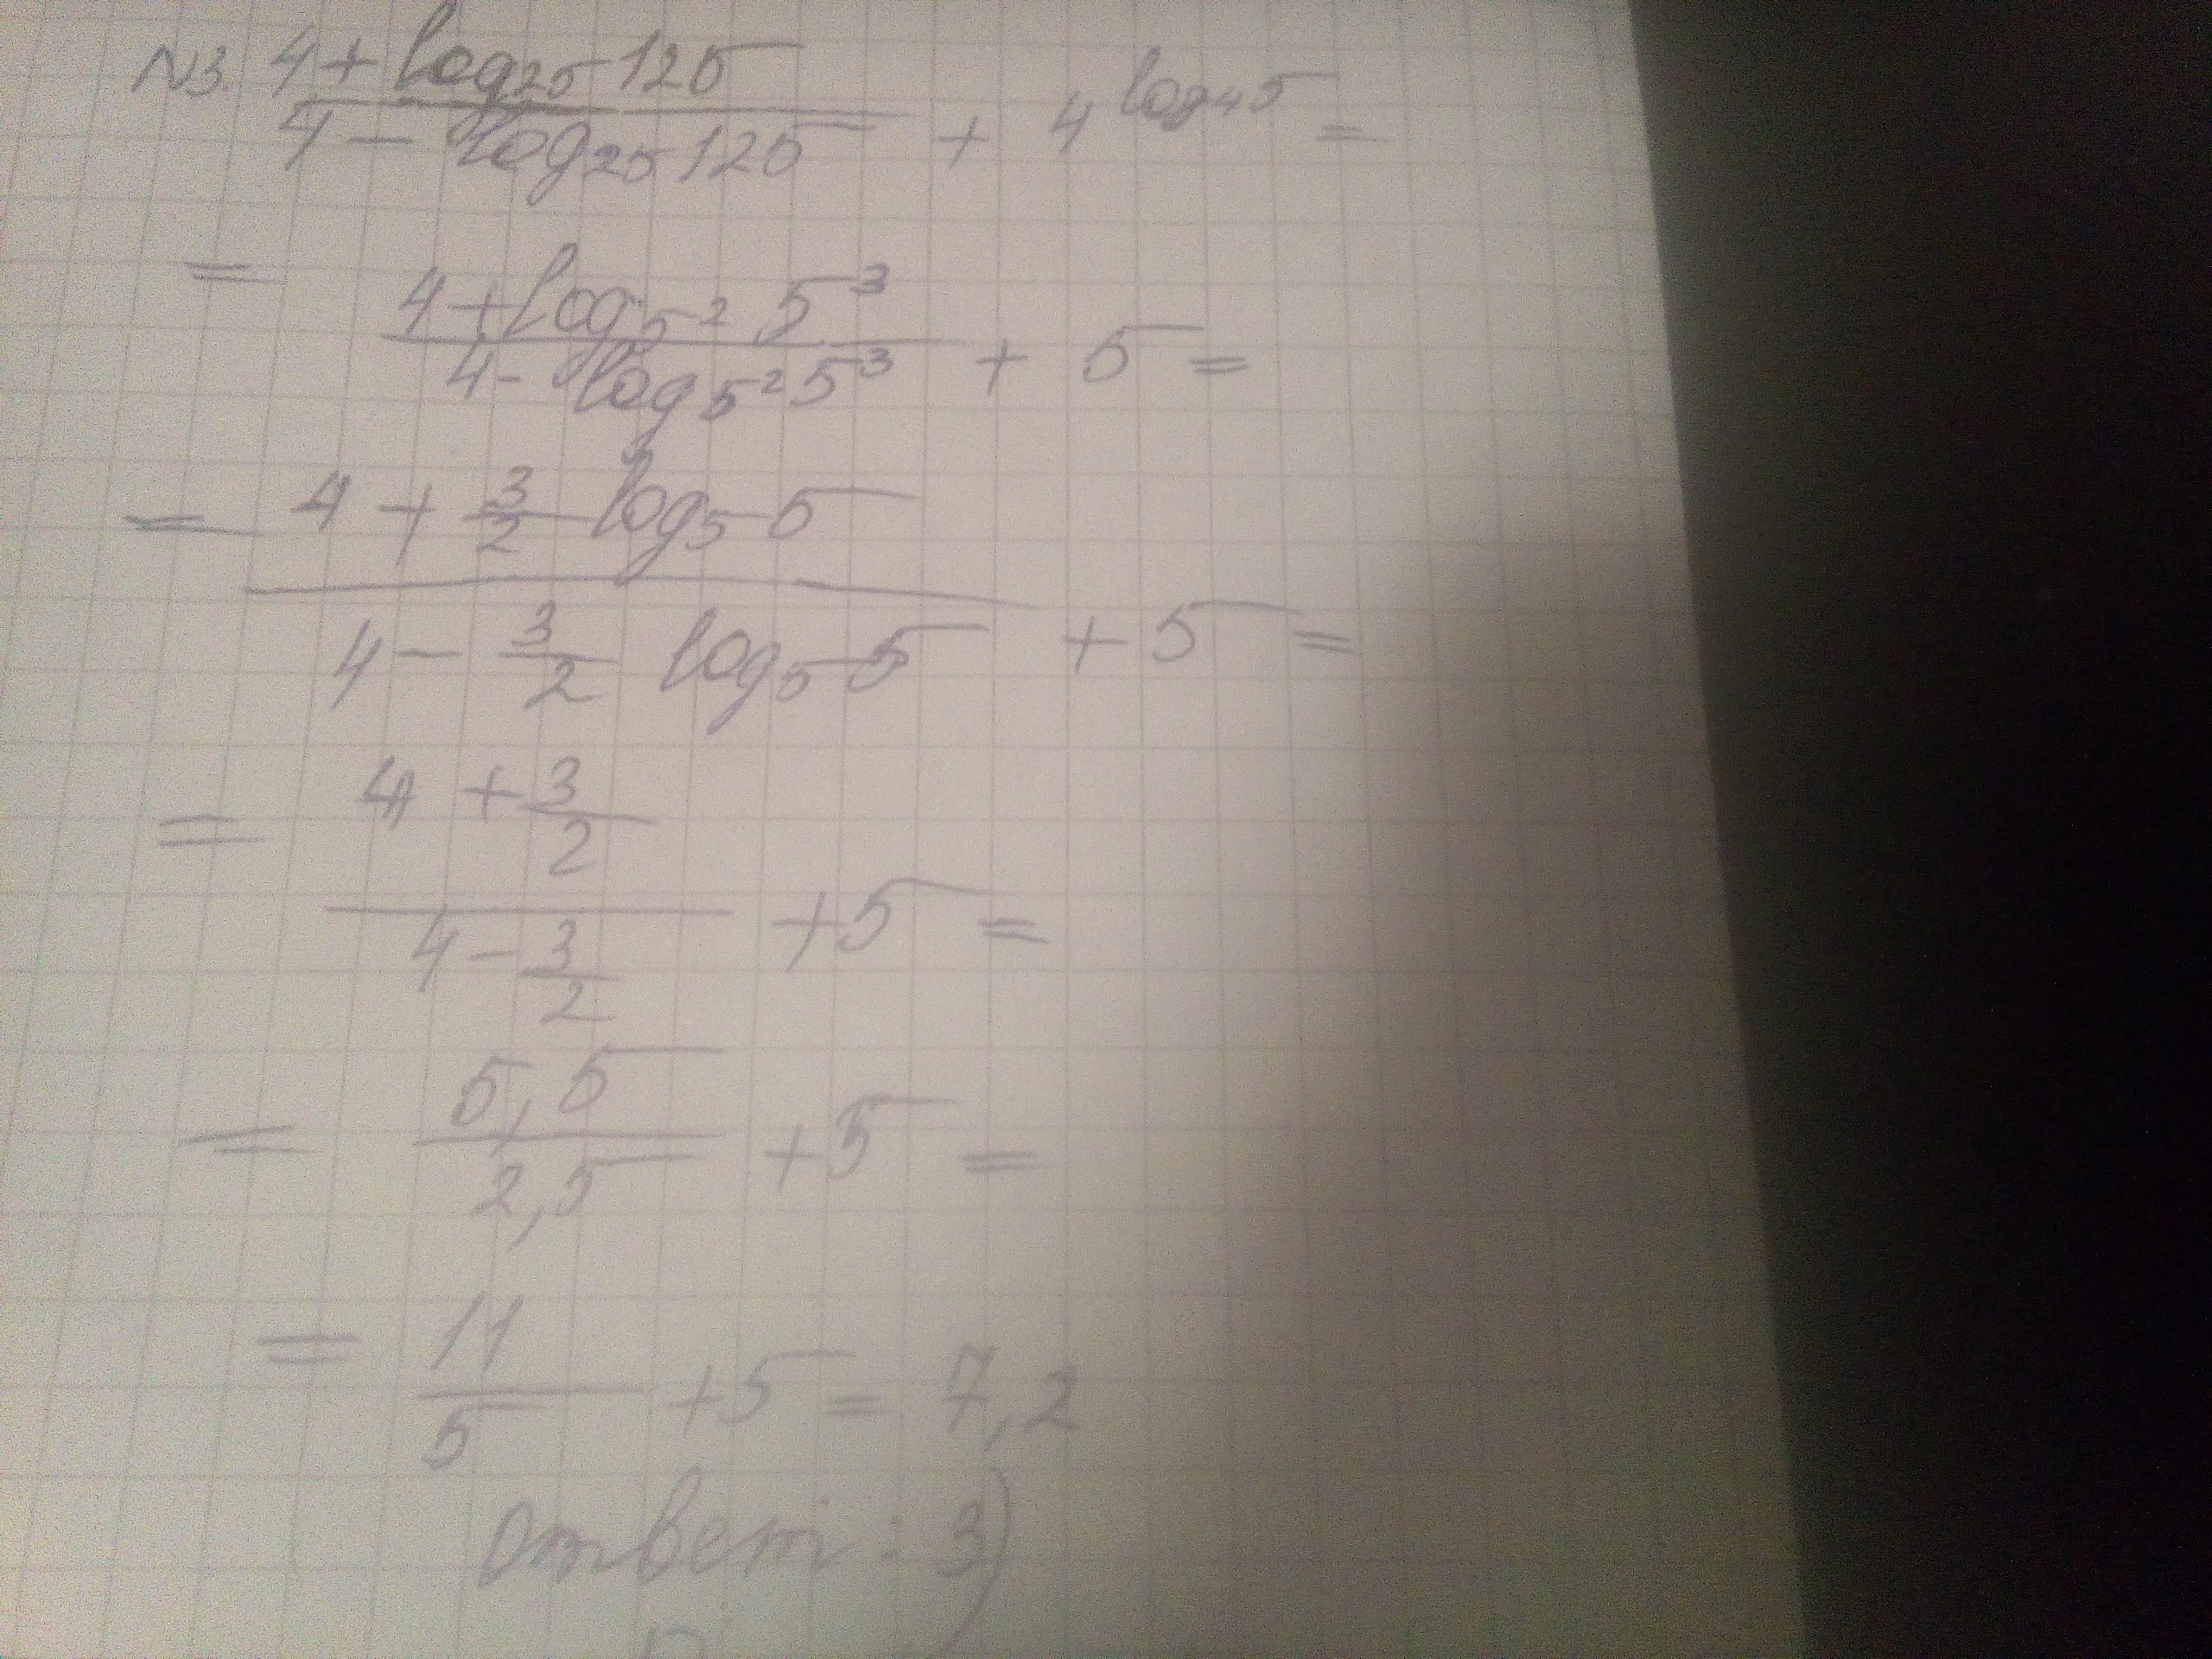 N3. (4 + log₂₅ 125)/(4 − log₂₅ 125) + 4^(log₄ 5) =
= (4 + log₅² 5³)/(4 - log₅² 5³) + 5 =
= (4 + 3/2 log₅ 5)/(4 − 3/2 log₅ 5) + 5 =
= (4 + 3/2)/(4 − 3/2) + 5 =
= 5,5/2,5 + 5 =
= 11/5 + 5 = 7,2
ответ: 3)